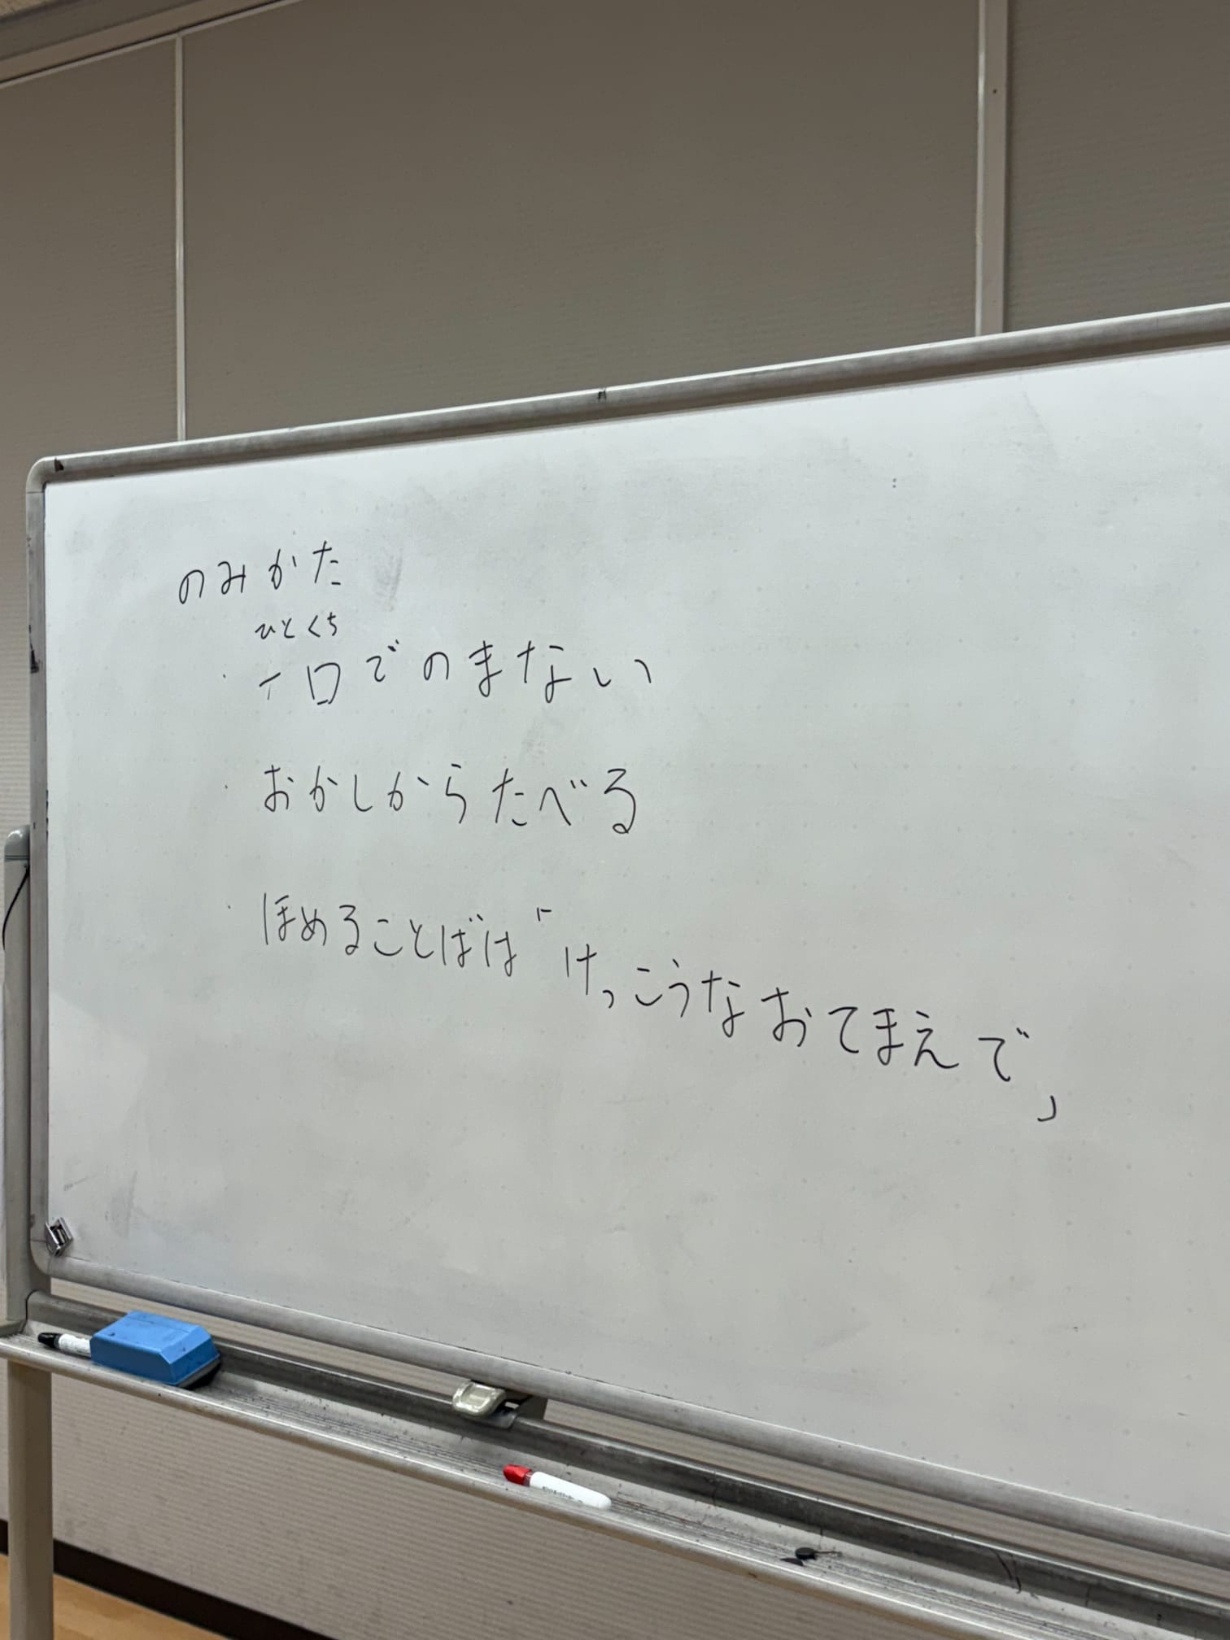 のみかた
ひとくち
・一口でのまない
・おかしからたべる
・ほめることばは「けっこうなおてまえで」